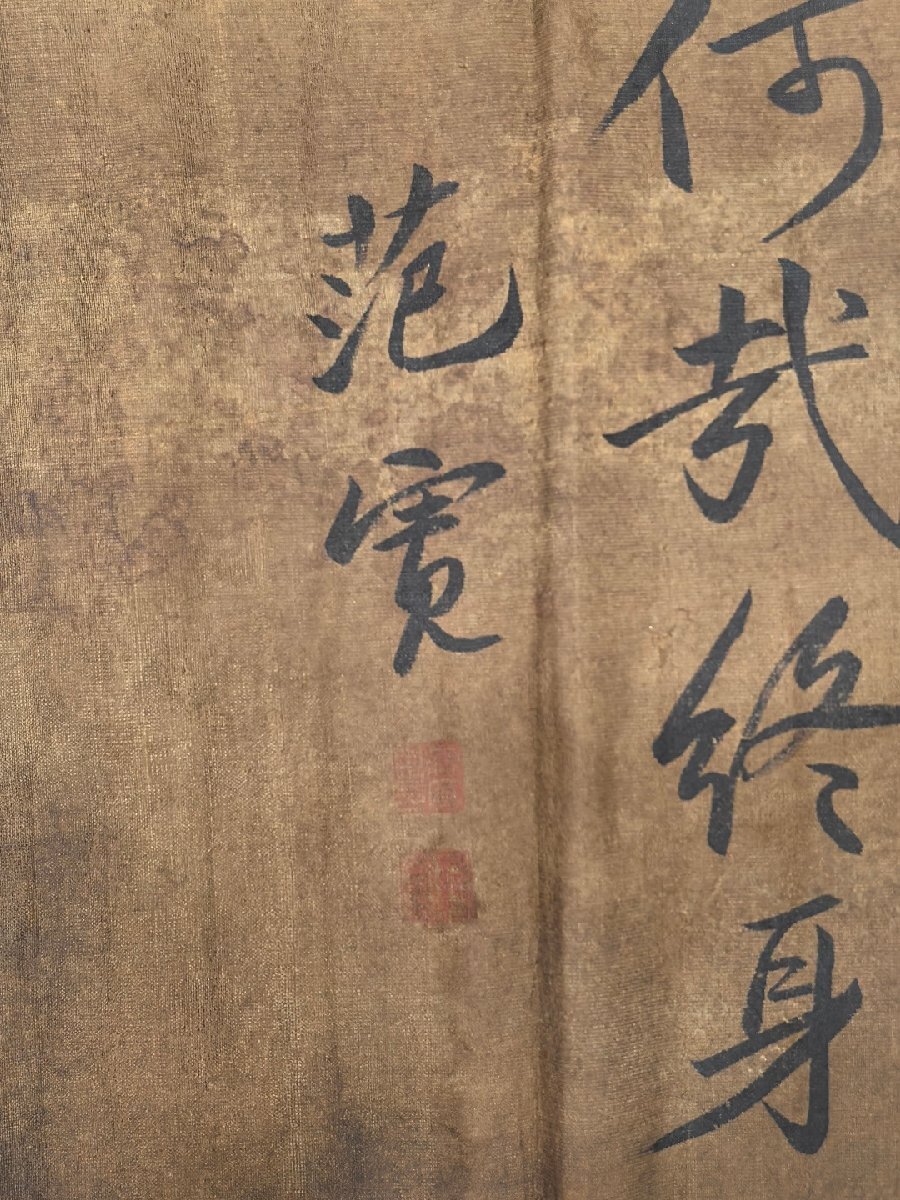 何哉終身
范寛